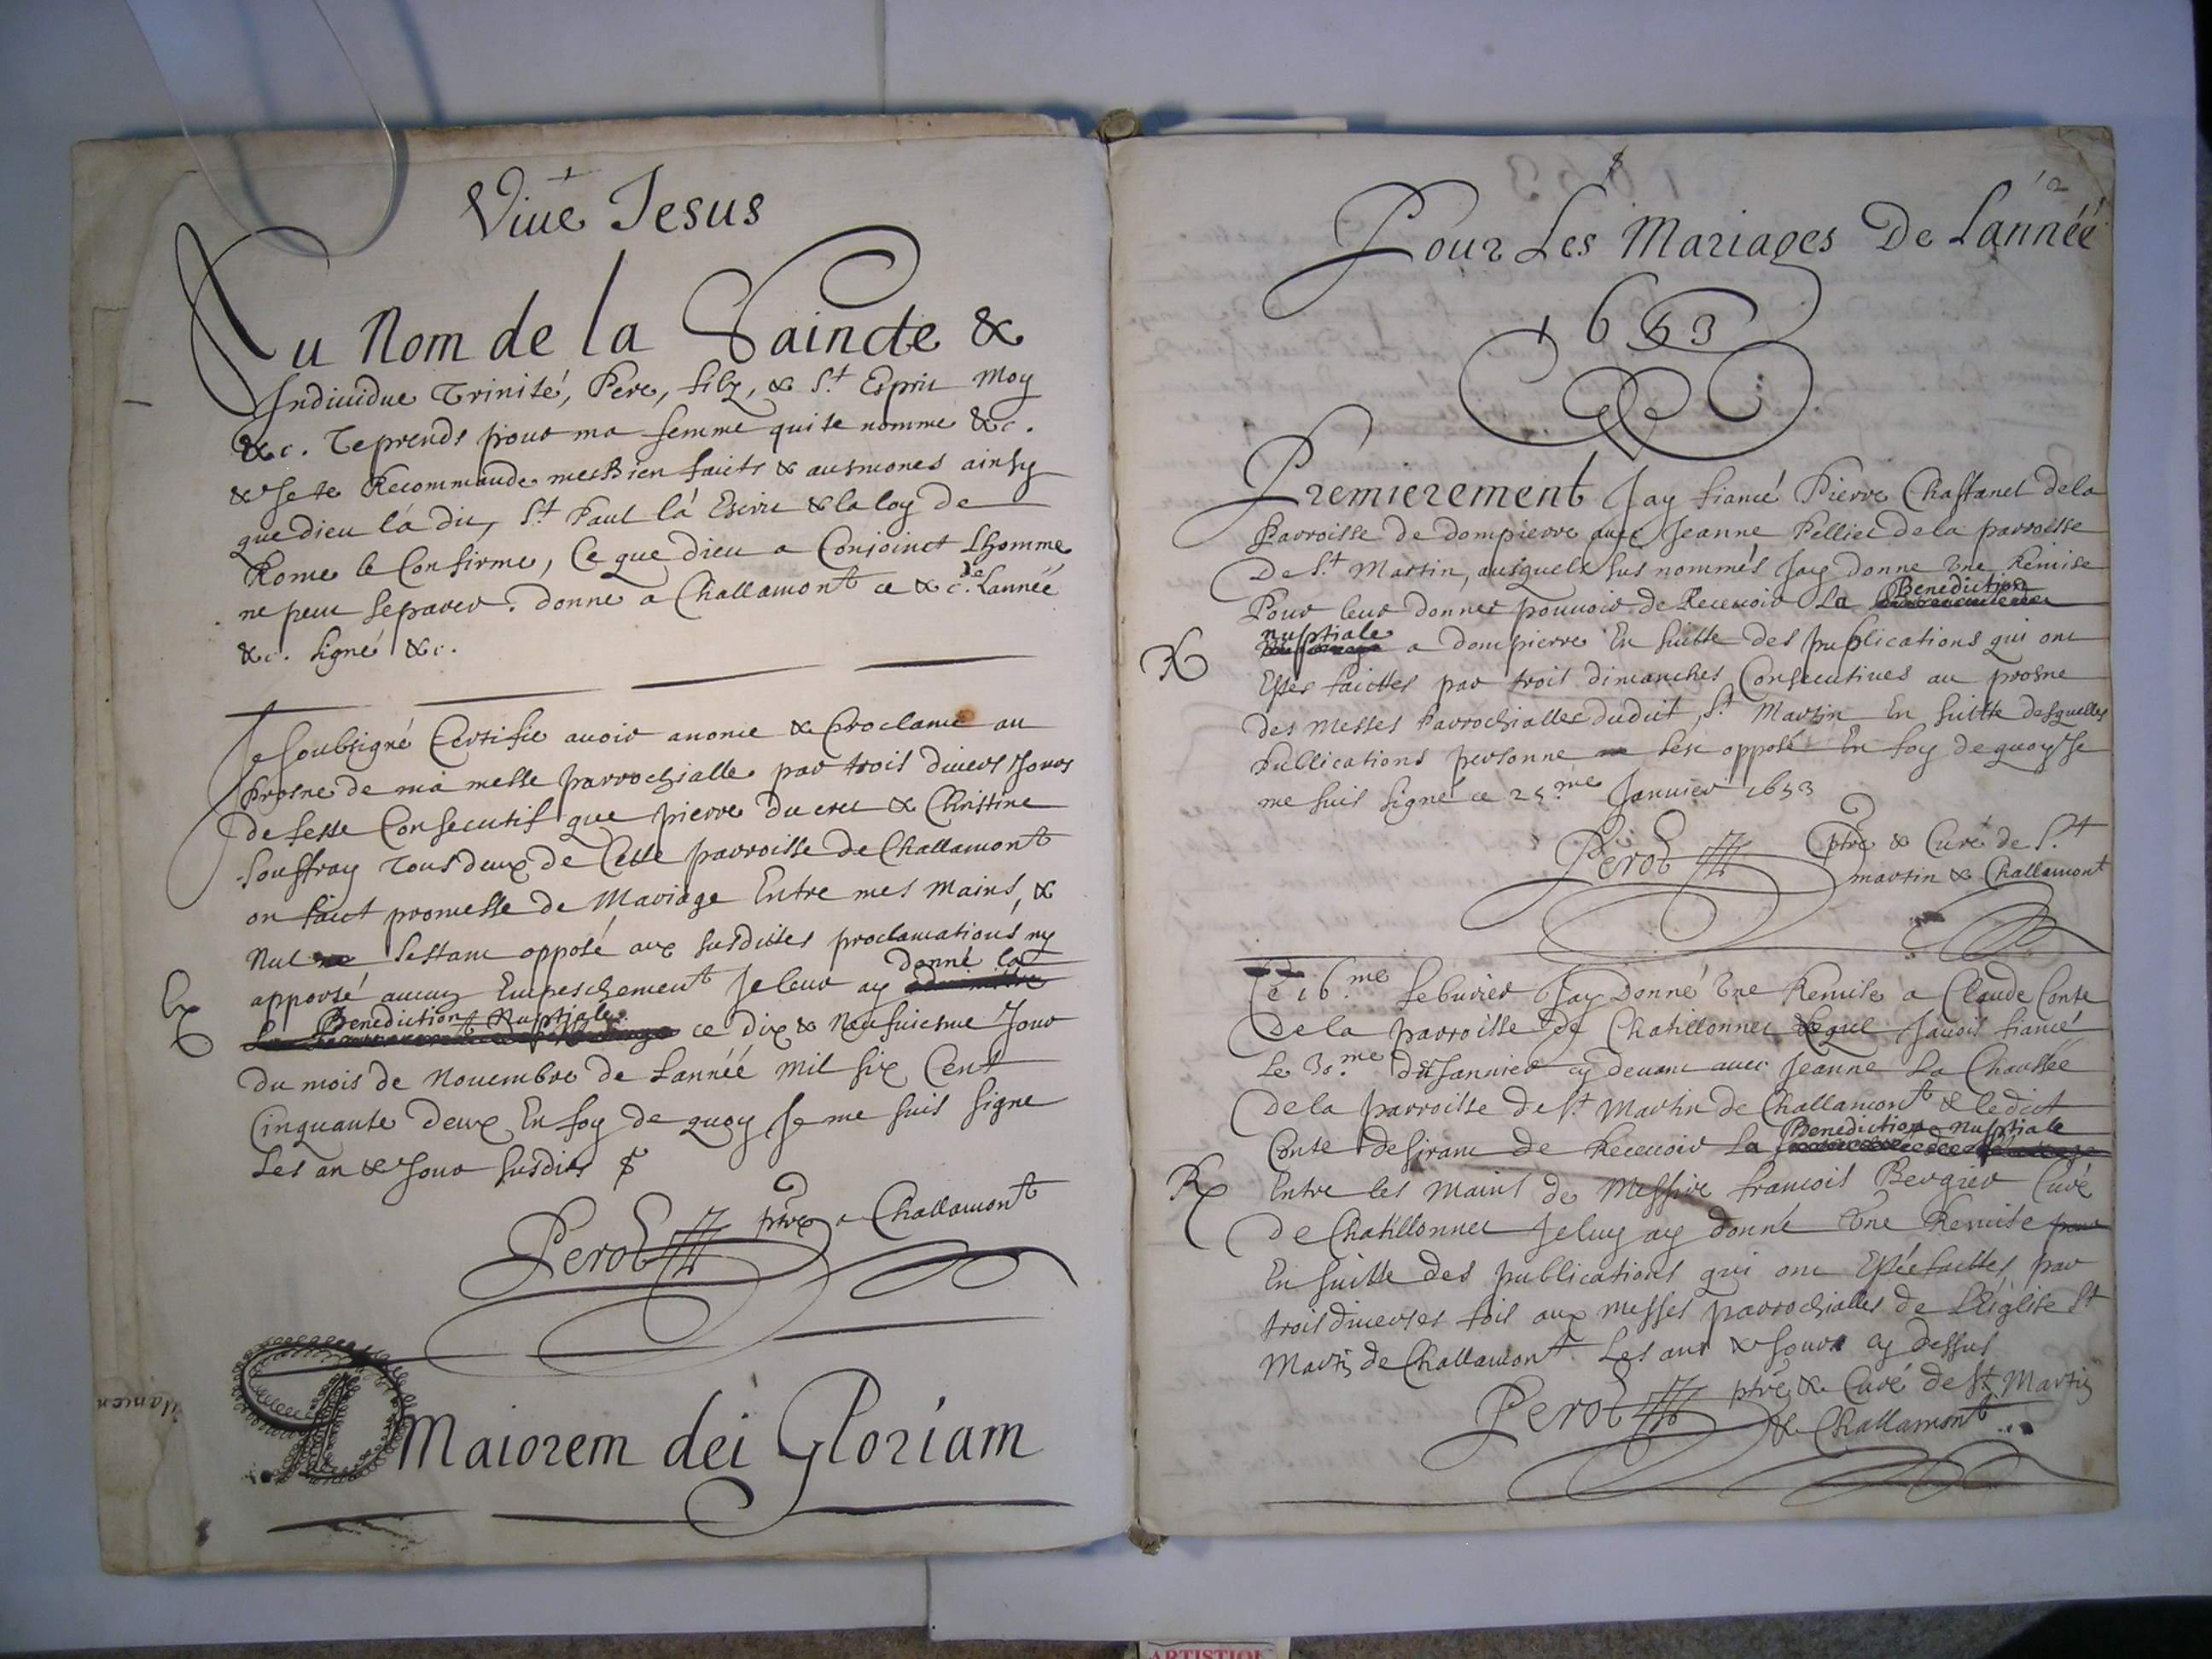 Viue Jesus
Au Nom de la Saincte &
Indiuidue Trinité, Pere, filz, & St Esprit Moy
&c. Te prends pour ma femme qui te nomme &c.
& Je te Recommande mes Bien faicts & ausmones ainsy
que dieu la dit, St Paul la Escrit & la loy de
Rome le Confirme, Ce que dieu a Conjoinct Lhomme
ne peut separer. donné a Challamont ce &c. de Lannéé
&c. signé &c.
Je Soubsigné Certifie auoir anoncé & Proclamé au
Prosne de ma messe parrochialle par trois diuers Jours
de feste Consecutif que pierre du cret & Christine
Souffray Tous deux de Cette parroisse de Challamont
on faict promesse de Mariage Entre mes mains, &
Nul sestant opposé aux susdittes proclamations ny
donné la
apporté aucun Empeschement Je leur ay
Benediction Nuptiale
ce dix & Neufuiesme Jour
du mois de Nouembre de Lannéé mil six Cent
Cinquante deux En foy de quoy Je me suis signe
Les an & Jour susdits
Perot ptre a Challamont
AD Maiorem dei Gloriam
2
Pour Les Mariages De Lannéé
1653
Premierement Jay fiancé Pierre Chastanel de la
Parroisse de dompierre auec Jeanne Pelliet de la parroisse
De St Martin, ausquels sus nommés Jay donné Vne Remise
Benediction
Pour leur donner pouuoir de Receuoir La
nuptiale
a dompierre En suitte des publications qui ont
Estes faictes par trois dimanches Consecutiues au prosne
des Messes Parrochialles dudit St Martin En suitte desquelles
Publications personne sest opposé En foy de quoy Je
me suis signé ce 25me Januier 1653
Perot ptre & Curé de St
martin & Challamont
Ce 16me feburier Jay Donné Vne Remise a Claude Conte
De la parroisse de Chatillonnet Lequel Jauois fiancé
Le 30me du Januier cy deuant auec Jeanne La Chaussée
De la parroisse de St Martin de Challamont & ledict
Benediction Nuptiale
Conte desirant de Receuoir La
Entre les mains de Messire francois Bergier Curé
de Chatillonnet Je luy ay donné Vne Remise
En suitte des publications qui ont Esté faittes par
trois diuerses fois aux messes parrochialles de Léglise St
Martin de Challamont Les ans & Jours cy dessus
Perot ptre & Curé de St Martin
& Challamont
ARTISTIQ